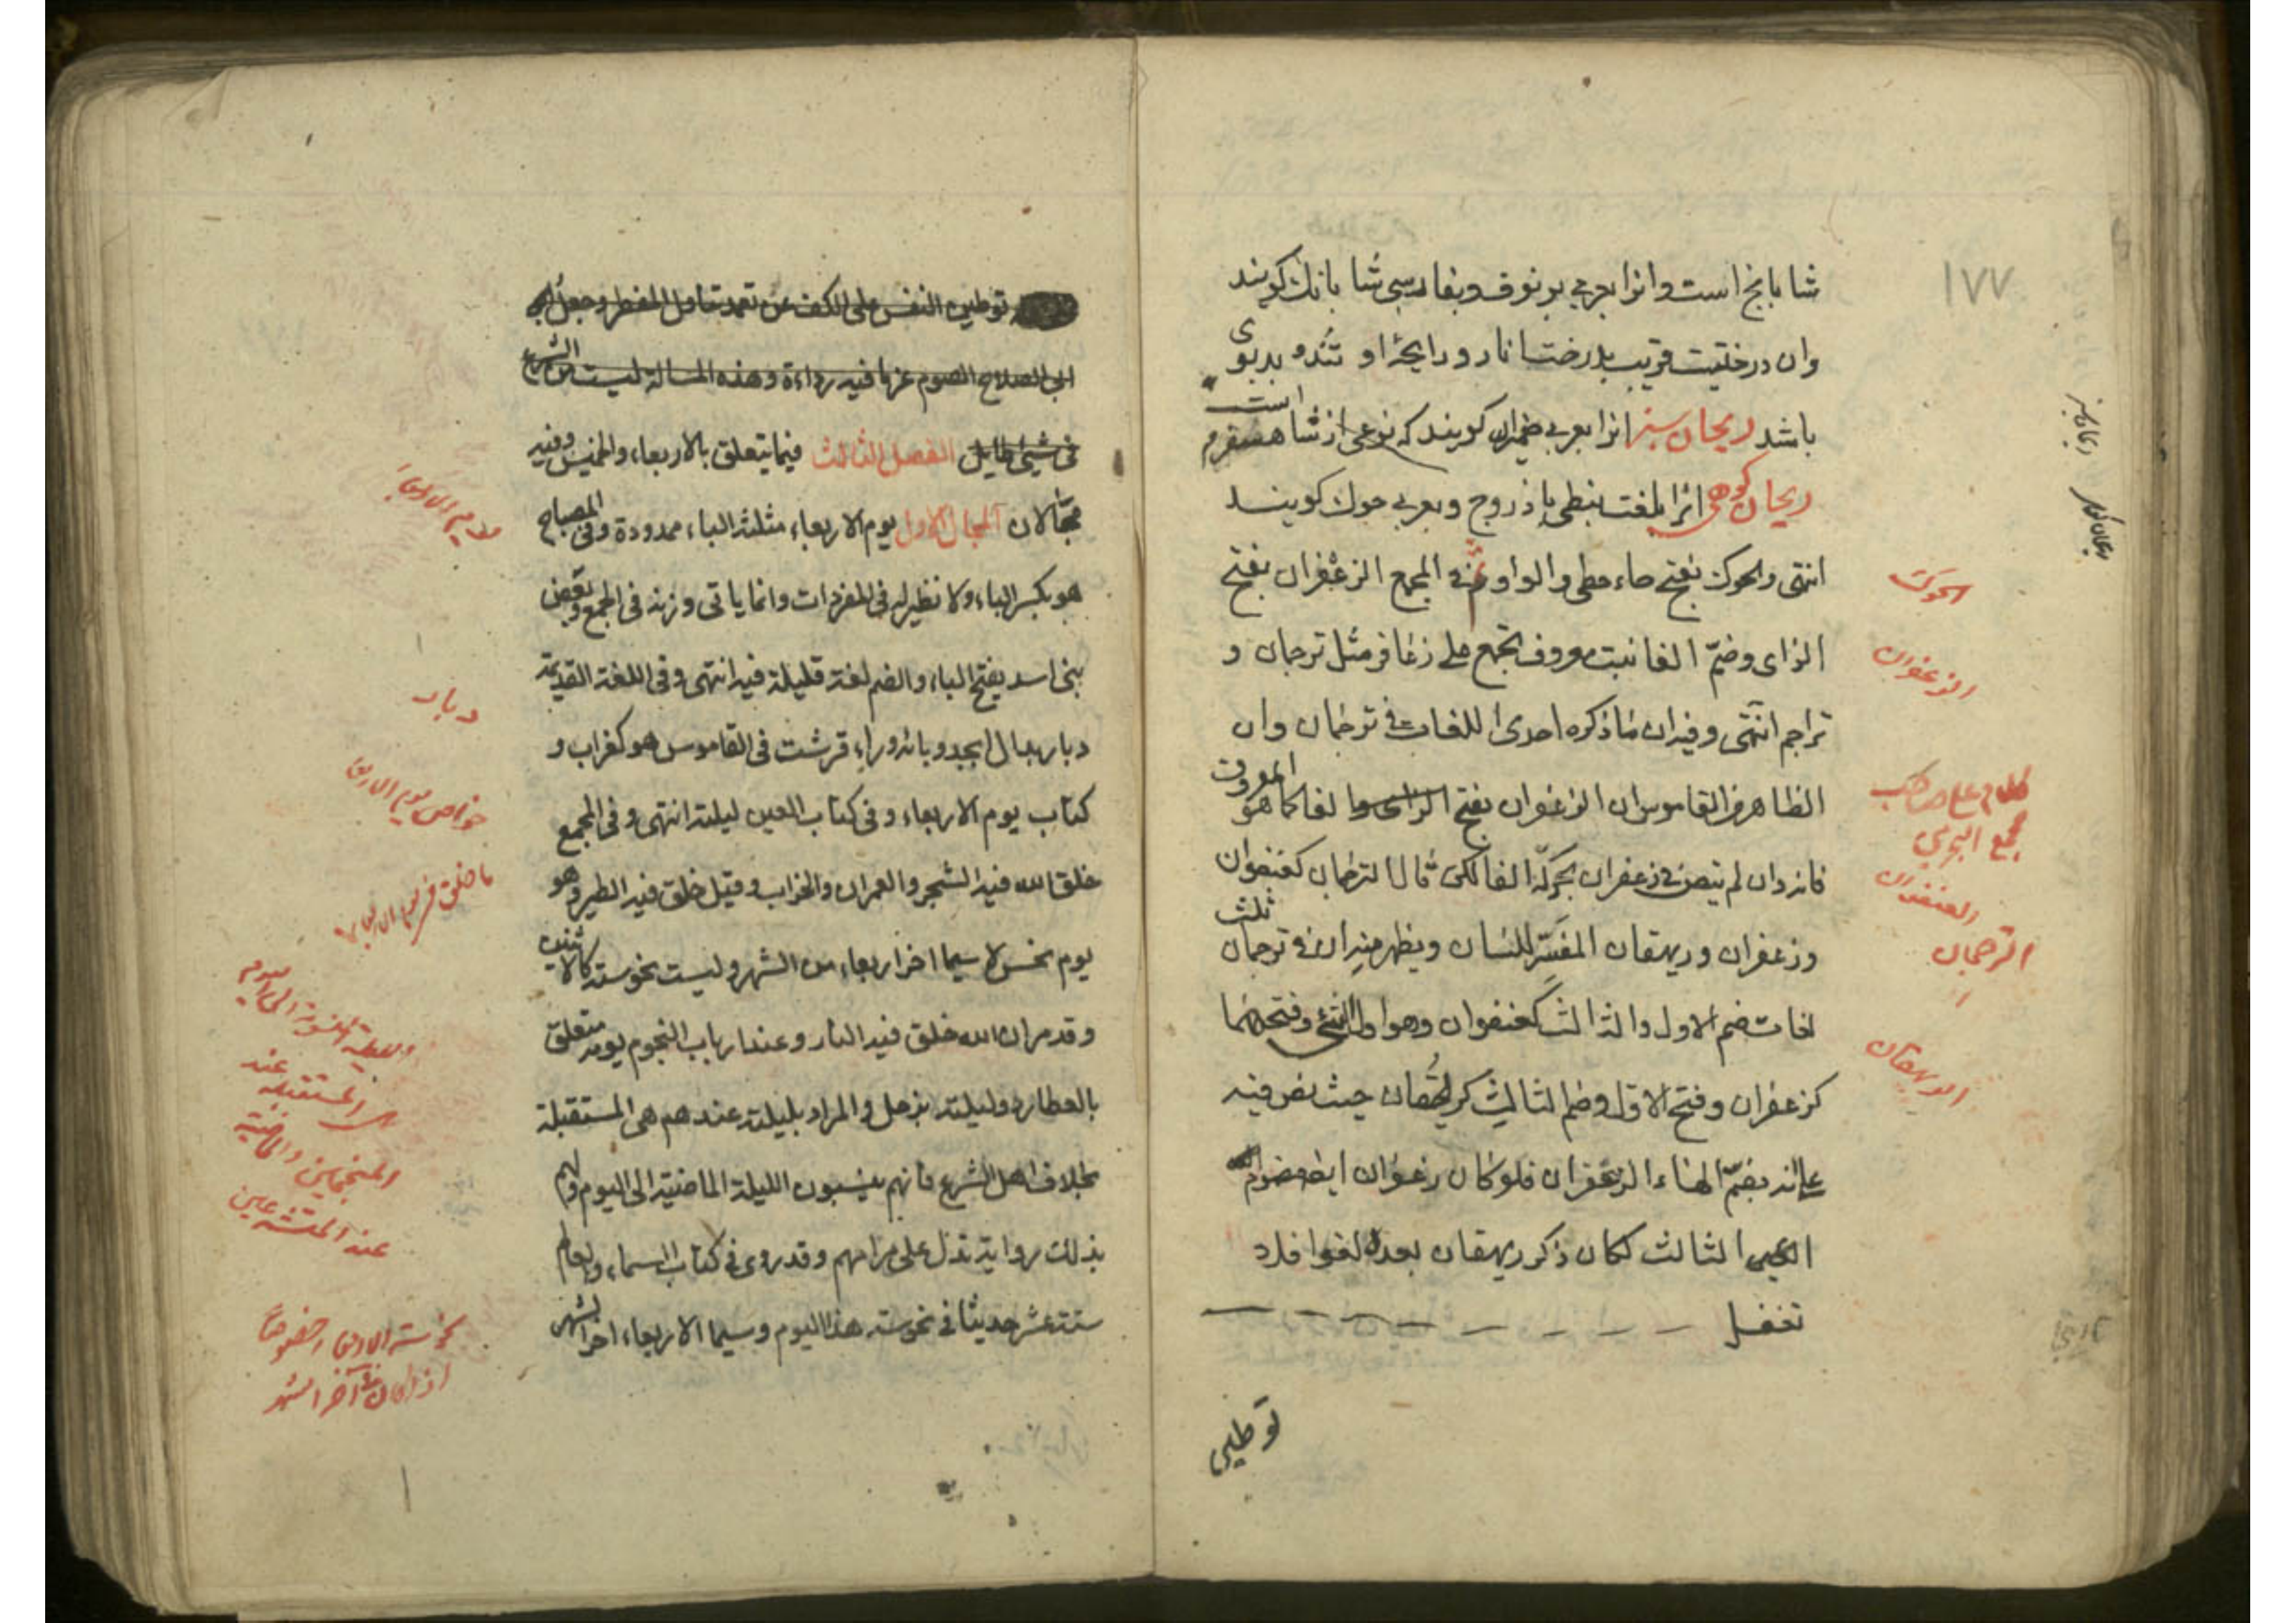 ١٧٧
شابانج است وانرا بعربي برنوف وبفارسي شابانك كويند
وان درختيست قريب بدرخت انار و رايحۀ او تند و بدبوى
باشد ريحان سبز انرا بعربي ضميران كويند كه نوعى از شاهسفرم است
ريحان كوهى انرا بلغت نبطى باذروج وبعربي حوك كويند
انتهى والحوك بفتح حاء حطى والواو وفي المجمع الزعفران بفتح
الزاى وضمّ الفا نبت معروف تجمع على زعافر مثل ترجمان و
تراجم انتهى وفيه ان ما ذكره احدى اللغات في ترجمان وان
الظاهر من القاموس ان الزعفران بفتح الفا كما هو المعروف
فانه وان لم ينص في زعفران بحركة الفا لكن قال الترجمان كعنفوان
وزعفران وريهقان المفسّر للسان ويظهر منه ان في ترجمان ثلث
لغات ضم الاول والثالث كعنفوان وفتحهما
كزعفران وفتح الاول وضم الثالث كريهقان حيث نص فيه
على انه بضمّ الهاء الزعفران فلو كان زعفران ايضا مضموم
الثالث لكان ذكر ريهقان بعده لغوا فلا
تغفل
توطين
ريحان سبز
ريحان كوهى
الحوك
الزعفران
كلام على صاحب
مجمع البحرين
العنفوان
الترجمان
الريهقان
توطين النفس على الكف عن تعمد تناول المفطر وجعل
الى اصلاح الصوم عما فيه رداءة وهذه المسالة ليست من الشرع
في شيء الفصل الثالث فيما يتعلق بالاربعاء والخميس وفيه
مجالان المجال الاول يوم الاربعاء مثلثة الباء ممدودة وفي المصباح
هو بكسر الباء ولا نظير له في المفردات وانما ياتى وزنه في الجمع وبعض
بنى اسد يفتح الباء والضم لغة قليلة فيه انتهى وفي اللغة القديمة
دبار بدال ابجد وبائه وراء قرشت في القاموس هو كغراب و
كتاب يوم الاربعاء وفي كتاب العين ليلته انتهى وفي المجمع
خلق الله فيه الشجر والعمران والخراب وقيل خلق فيه الطير وهو
يوم نحس لا سيما اخر اربعاء من الشهر وليست نحوسته كالاثنين
وقد مر ان الله خلق فيه النار وعند ارباب النجوم يومه متعلق
بالعطارد وليلته بزحل والمراد بليلته عندهم هى المستقبلة
بخلاف اهل الشرع فانهم ينسبون الليلة الماضية الى اليوم ولهم
بذلك رواية تدل على مرامهم وقد روى في كتاب السماء والعالم
ستة عشر حديثا في نحوسة هذا اليوم وسيما الاربعاء اخر الشهر
يوم الاربعاء
دبار
خواص يوم الاربعا
ما خلق في يوم الاربعا
الليلة المنسوبة الى اليوم
المستقبلة عند
المنجمين والماضية
عند المتشرعين
نحوسة الاربعاء خصوصاً
اذا كان في آخر الشهر